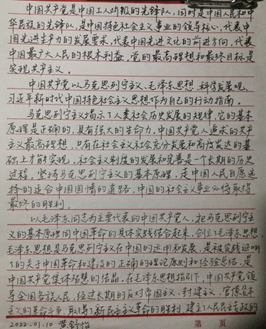 中国共产党是中国工人阶级的先锋队，同时是中国人民和中
华民族的先锋队，是中国特色社会主义事业的领导核心，代表中
国先进生产力的发展要求，代表中国先进文化的前进方向，代表
中国最广大人民的根本利益。党的最高理想和最终目标是
实现共产主义。
中国共产党以马克思列宁主义、毛泽东思想、科学发展观、
习近平新时代中国特色社会主义思想作为自己的行动指南。
马克思列宁主义揭示了人类社会历史发展的规律，它的基本
原理是正确的，具有强大的生命力。中国共产党人追求的共产
主义最高理想，只有在社会主义社会充分发展和高度发达的基
础上才能实现。社会主义制度的发展和完善是一个长期的历史
过程。坚持马克思列宁主义的基本原理，走中国人民自愿
选择的适合中国国情的道路，中国的社会主义事业必将取得
最终的胜利。
以毛泽东同志为主要代表的中国共产党人，把马克思列宁主
义的基本原理同中国革命的具体实践结合起来，创立了毛泽东思想。
毛泽东思想是马克思列宁主义在中国的运用和发展，是被实践证明
了的关于中国革命和建设的正确的理论原则和经验总结，是
中国共产党集体智慧的结晶。在毛泽东思想指引下，中国共产党领
导全国各族人民，经过长期的反对帝国主义、封建主义、官僚资本
主义的革命斗争，取得了新民主主义革命的胜利，建立了人民民主专政的
2022.01.10
第 页